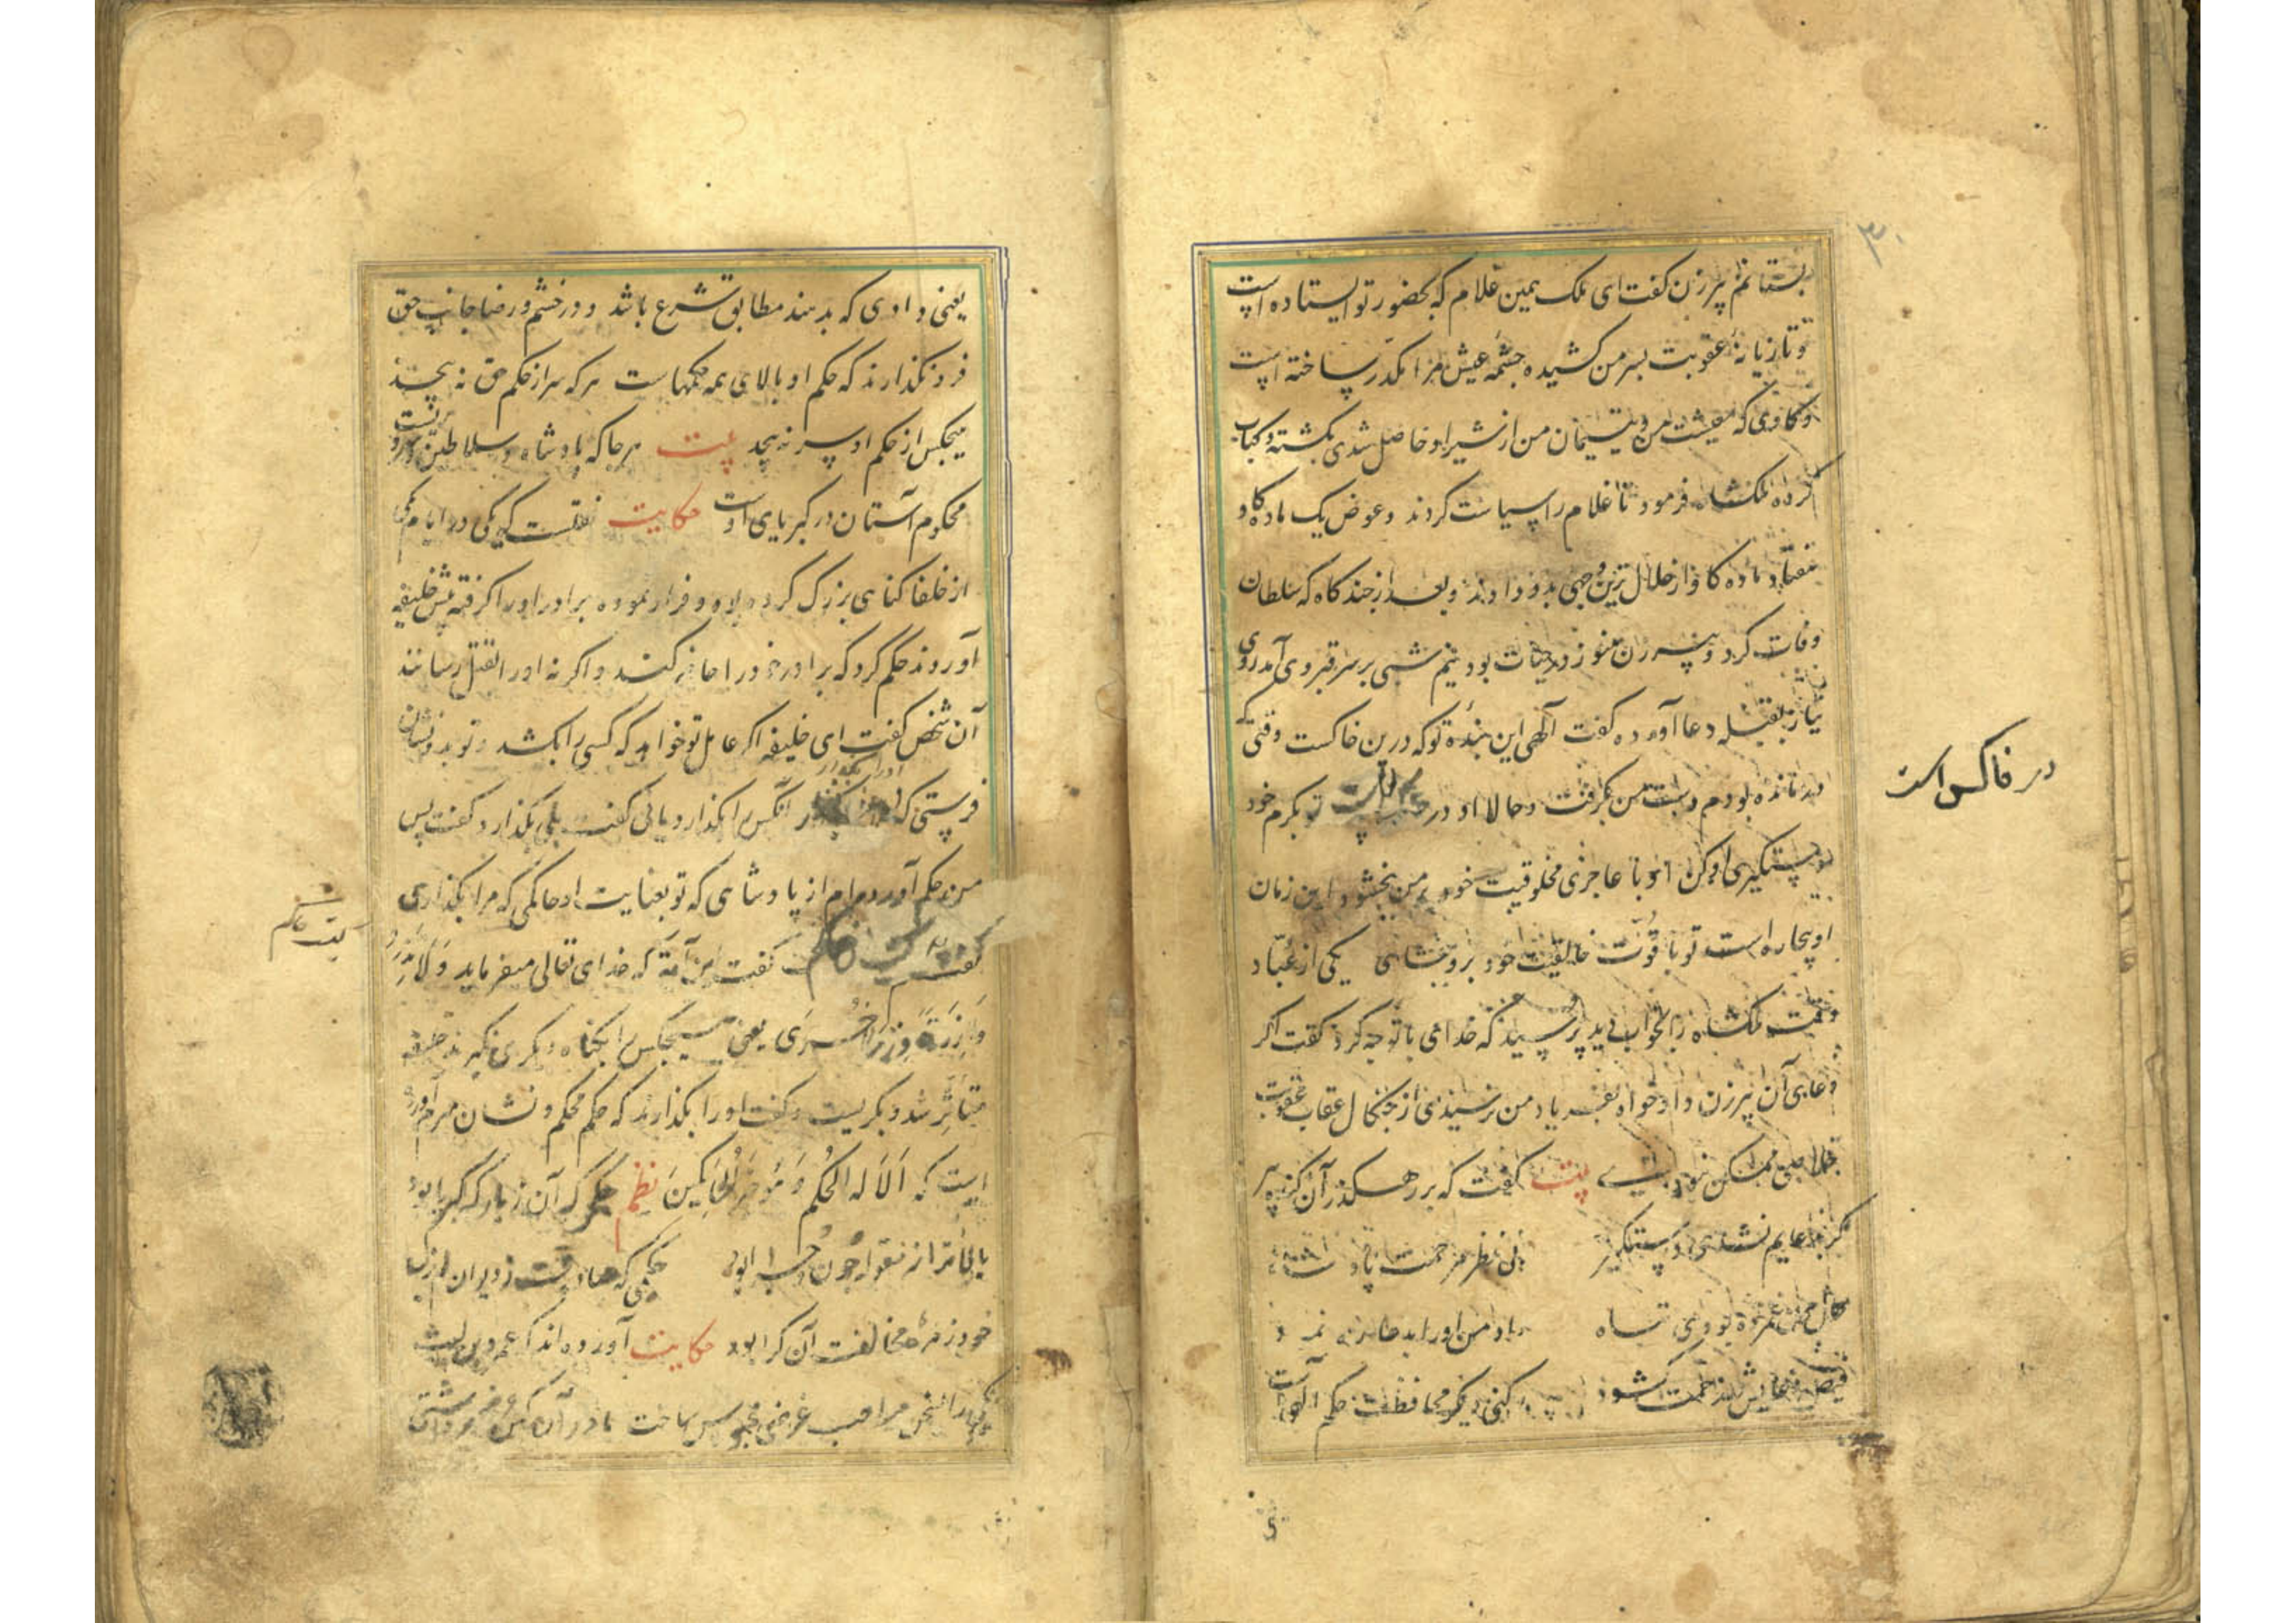 ۳۰
بستانم پیرزن کفت ای ملک همین غلام که بحضور تو ایستاده است
و تازیانهٔ عقوبت بسر من کشیده چشمهٔ عیش مرا مکدر ساخته است
و کاوی که معیشت من و یتیمان من از شیر او حاصل شدی بکشته و کباب
کرده ملکشاه فرمود تا غلام را سیاست کردند و عوض یک ماده کاو
هفتاد ماده کاو از حلال ترین وجهی بدو دادند و بعد از چند کاه که سلطان
وفات کرد و پیرزن هنوز در حیات بود نیم شبی بر سر قبر وی آمد روی
نیاز بقبله دعا آورده کفت الهی این بندهٔ تو که درین خاکست وقتی که
درمانده بودم دست من بکرفت و حالا او در تو بکرم خود
دستکیری او کن او با عاجزی مخلوقیت خود بر من بخشود این زمان
او بیچاره است تو با قوت خالقیت خود برو بخشای یکی از عباد
وقت ملکشاه را بخواب دید پرسید که خدای با تو چه کرد کفت اکر
دعای آن پیرزن داد خواه بفریاد من نرسیدی از چنکال عقاب عقوبت
خلاصی ممکن نبودی بیت کفت که بر رهکذر آن کنده پیر
کر بدعایم نشدی دستکیر
حال من غمزده بودی تباه
فیض دعایش در رحمت کشود دیکر محافظت حکم الهی است
در خاکس است
یعنی دادی که بدهند مطابق شرع باشد و در خشم و رضا جانب حق
فرو نکذارند که حکم او بالای همه حکمهاست هر که سر از حکم حق نه پیچد
هیچکس از حکم او سر نه پیچد بیت هر جا که پادشاه و سلاطین و سروریست
محکوم آستان در کبریای اوست حکایت نقلست که یکی در ایام یکی
از خلفا کناهی بزرک کرده بود و فرار نموده برادر او را کرفته پیش خلیفه
آوردند حکم کرد که برادر خود را حاضر کند و اکر نه او را بقتل رسانند
آن شخص کفت ای خلیفه اکر عامل تو خواهد که کسی را بکشد و تو بدو نشان
فرستی که او را بکذار آنکس را بکذارد یا نی کفت بلی بکذارد کفت پس
من حکم آورده ام از پادشاهی که تو بعنایت او حاکمی که مرا بکذاری
کفت کفت این آیه که خدای تعالی میفرماید وَلَا تَزِرُ
وَازِرَةٌ وِزْرَ أُخْرَى یعنی هیچکس را بکناه دیکری نکیرند خلیفه
متأثر شد و بکریست و کفت او را بکذارید که حکم محکم و نشان مبرم آورده
است که أَلَا لَهُ الْحُكْمُ وَهُوَ خَيْرُ الْحَاكِمِينَ نظم حکم که آن ز بارکه کبریا بود
بالاتر از تصور چون و چرا بود
خود زهرهٔ مخالفت آن کرا بود حکایت آورده اند که عمرو بن لیث